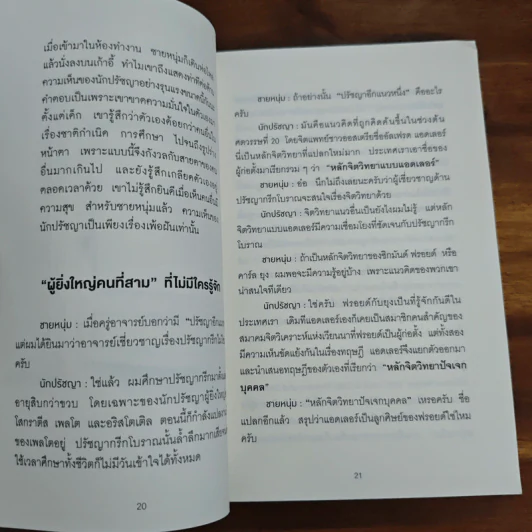 เมื่อเข้ามาในห้องทำงาน ชายหนุ่มก็เดินห่อไหล่
แล้วนั่งลงบนเก้าอี้ ทำไมเขาถึงแสดงท่าทีต่อต้าน
ความเห็นของนักปรัชญาอย่างรุนแรงขนาดนี้กัน
คำตอบเป็นเพราะเขาขาดความมั่นใจในตัวเอง
ตั้งแต่เด็ก เขารู้สึกว่าตัวเองด้อยกว่าคนอื่น
เรื่องชาติกำเนิด การศึกษา ไปจนถึงรูปร่าง
หน้าตา เพราะแบบนี้จึงกังวลกับสายตาของคน
อื่นมากเกินไป และยังรู้สึกเกลียดตัวเอง
ตลอดเวลาด้วย เขาไม่รู้สึกยินดีเมื่อเห็นคนอื่นมี
ความสุข สำหรับชายหนุ่มแล้ว ความเห็นของ
นักปรัชญาเป็นเพียงเรื่องเพ้อฝันเท่านั้น
“ผู้ยิ่งใหญ่คนที่สาม” ที่ไม่มีใครรู้จัก
ชายหนุ่ม : เมื่อครู่อาจารย์บอกว่ามี “ปรัชญาอีก
แต่ผมได้ยินมาว่าอาจารย์เชี่ยวชาญเรื่องปรัชญากรีก
ครับ
นักปรัชญา : ใช่แล้ว ผมศึกษาปรัชญากรีกมาตั้ง
อายุสิบกว่าขวบ โดยเฉพาะของนักปรัชญาผู้ยิ่งใหญ่
โสกราตีส เพลโต และอริสโตเติล ตอนนี้ก็กำลังแปล
ของเพลโตอยู่ ปรัชญากรีกโบราณนั้นล้ำลึกมาก
ใช้เวลาศึกษาทั้งชีวิตก็ไม่มีวันเข้าใจได้ทั้งหมด
20
ชายหนุ่ม : ถ้าอย่างนั้น “ปรัชญาอีกแนวหนึ่ง” คืออะไร
ครับ
นักปรัชญา : มันคือแนวคิดที่ถูกคิดค้นขึ้นในช่วงต้น
ศตวรรษที่ 20 โดยจิตแพทย์ชาวออสเตรียชื่ออัลเฟรด แอดเลอร์
นี่เป็นหลักจิตวิทยาที่แปลกใหม่มาก ประเทศเราเอาชื่อของ
ผู้ก่อตั้งมาเรียกรวม ๆ ว่า “หลักจิตวิทยาแบบแอดเลอร์”
ชายหนุ่ม : ช่อ นึกไม่ถึงเลยนะครับว่าผู้เชี่ยวชาญด้าน
ปรัชญากรีกโบราณจะสนใจเรื่องจิตวิทยาด้วย
นักปรัชญา : จิตวิทยาแนวอื่นเป็นยังไงผมไม่รู้ แต่หลัก
จิตวิทยาแบบแอดเลอร์มีความเชื่อมโยงที่ชัดเจนกับปรัชญากรีก
โบราณ
ชายหนุ่ม : ถ้าเป็นหลักจิตวิทยาของซิกมันด์ ฟรอยด์ หรือ
คาร์ล ยุง ผมพอจะมีความรู้อยู่บ้าง เพราะแนวคิดของพวกเขา
น่าสนใจทีเดียว
นักปรัชญา : ใช่ครับ ฟรอยด์กับยุงเป็นที่รู้จักกันดีใน
ประเทศเรา เดิมทีแอดเลอร์เองก็เคยเป็นสมาชิกคนสำคัญของ
สมาคมจิตวิเคราะห์แห่งเวียนนาที่ฟรอยด์เป็นผู้ก่อตั้ง แต่ทั้งสอง
มีความเห็นขัดแย้งกันในเรื่องทฤษฎี แอดเลอร์จึงแยกตัวออกมา
และนำเสนอทฤษฎีของตัวเองที่เรียกว่า “หลักจิตวิทยาปัจเจก
บุคคล”
ชายหนุ่ม : “หลักจิตวิทยาปัจเจกบุคคล” เหรอครับ ชื่อ
แปลกอีกแล้ว สรุปว่าแอดเลอร์เป็นลูกศิษย์ของฟรอยด์ใช่ไหม
ครับ
21